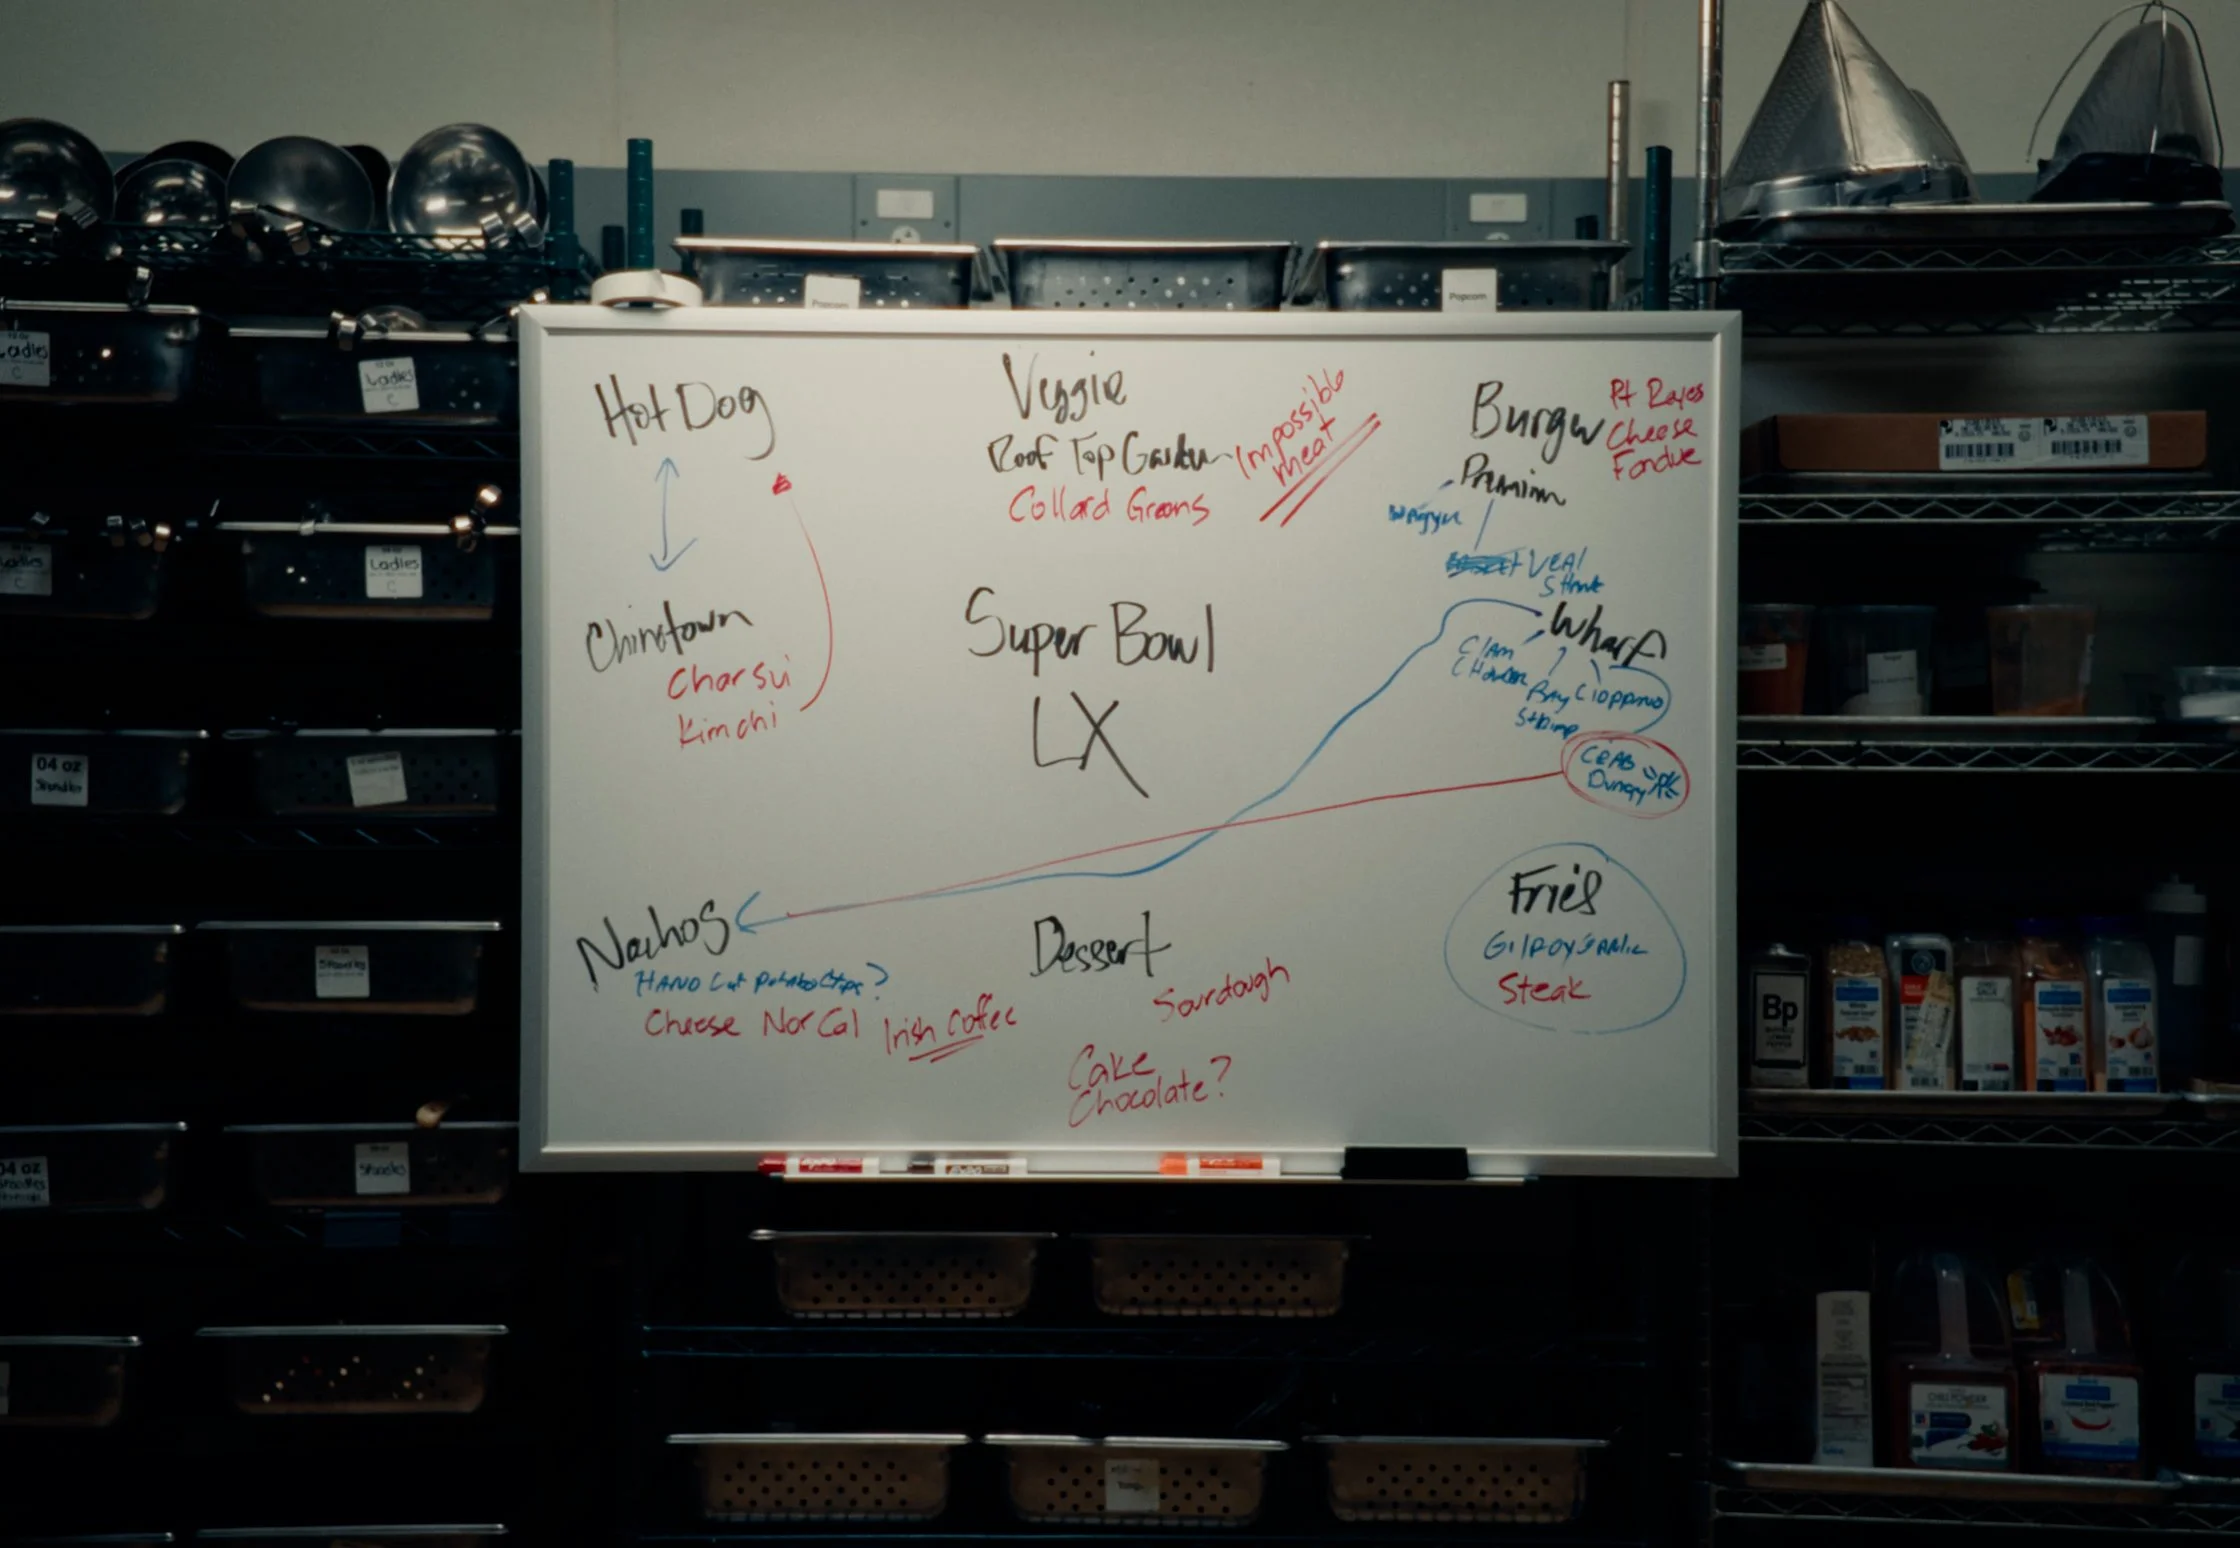 Popcorn
Popcorn
Ladles
C
Ladles
C
Ladles
C
Ladles
C
04 oz
Spoodles
Spoodles
04 oz
Spoodles
Spoodles
Hot Dog
Veggie
Roof Top Garden
Collard Greens
Impossible
meat
Burger
Premium
Pt Reyes
Cheese
Fondue
Wagyu
VEAl
SHANK
Chinatown
Char sui
Kimchi
Super Bowl
LX
Wharf
Clam
CHOWDER
BAY
SHRIMP
Cioppino
CRAB
Dungy
Nachos
HAND Cut Potato Chips?
Cheese Nor Cal
Irish Coffee
Dessert
Sourdough
Cake
Chocolate?
Fries
GilROY GARLIC
Steak
Bp
CHILI POWDER